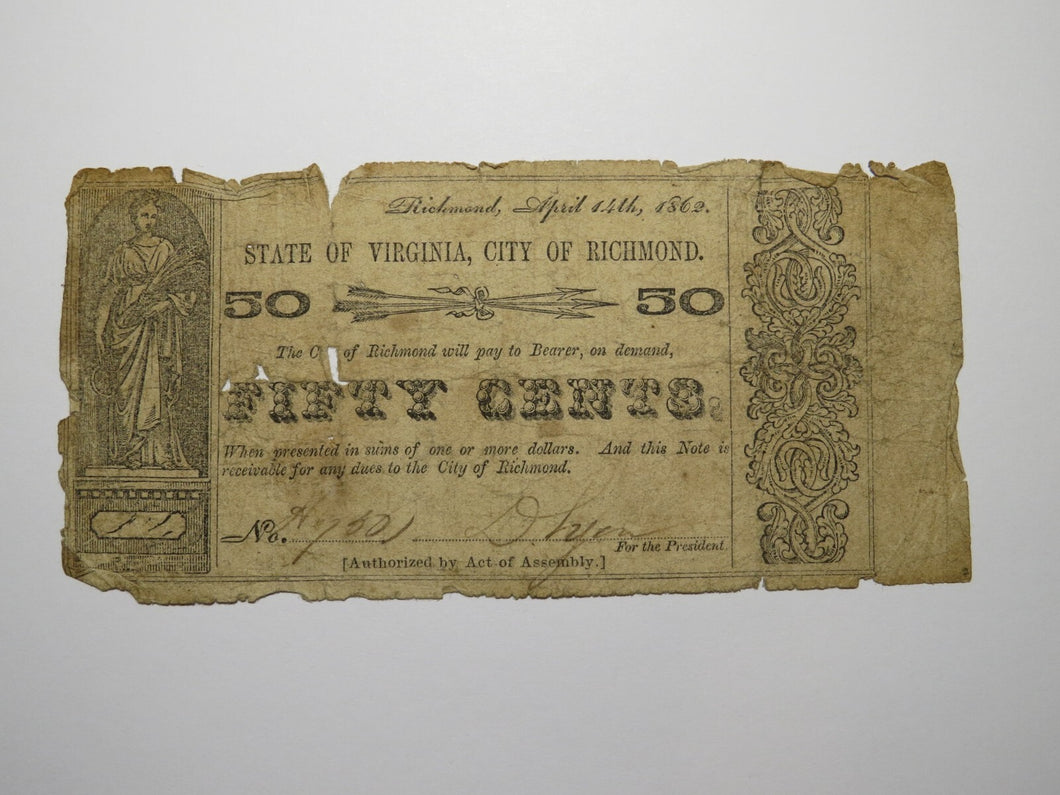 Richmond, April 14th, 1862.
STATE OF VIRGINIA, CITY OF RICHMOND.
50 50
The C of Richmond will pay to Bearer, on demand,
FIFTY CENTS.
When presented in sums of one or more dollars. And this Note is
receivable for any dues to the City of Richmond.
No.
For the President
[Authorized by Act of Assembly.]